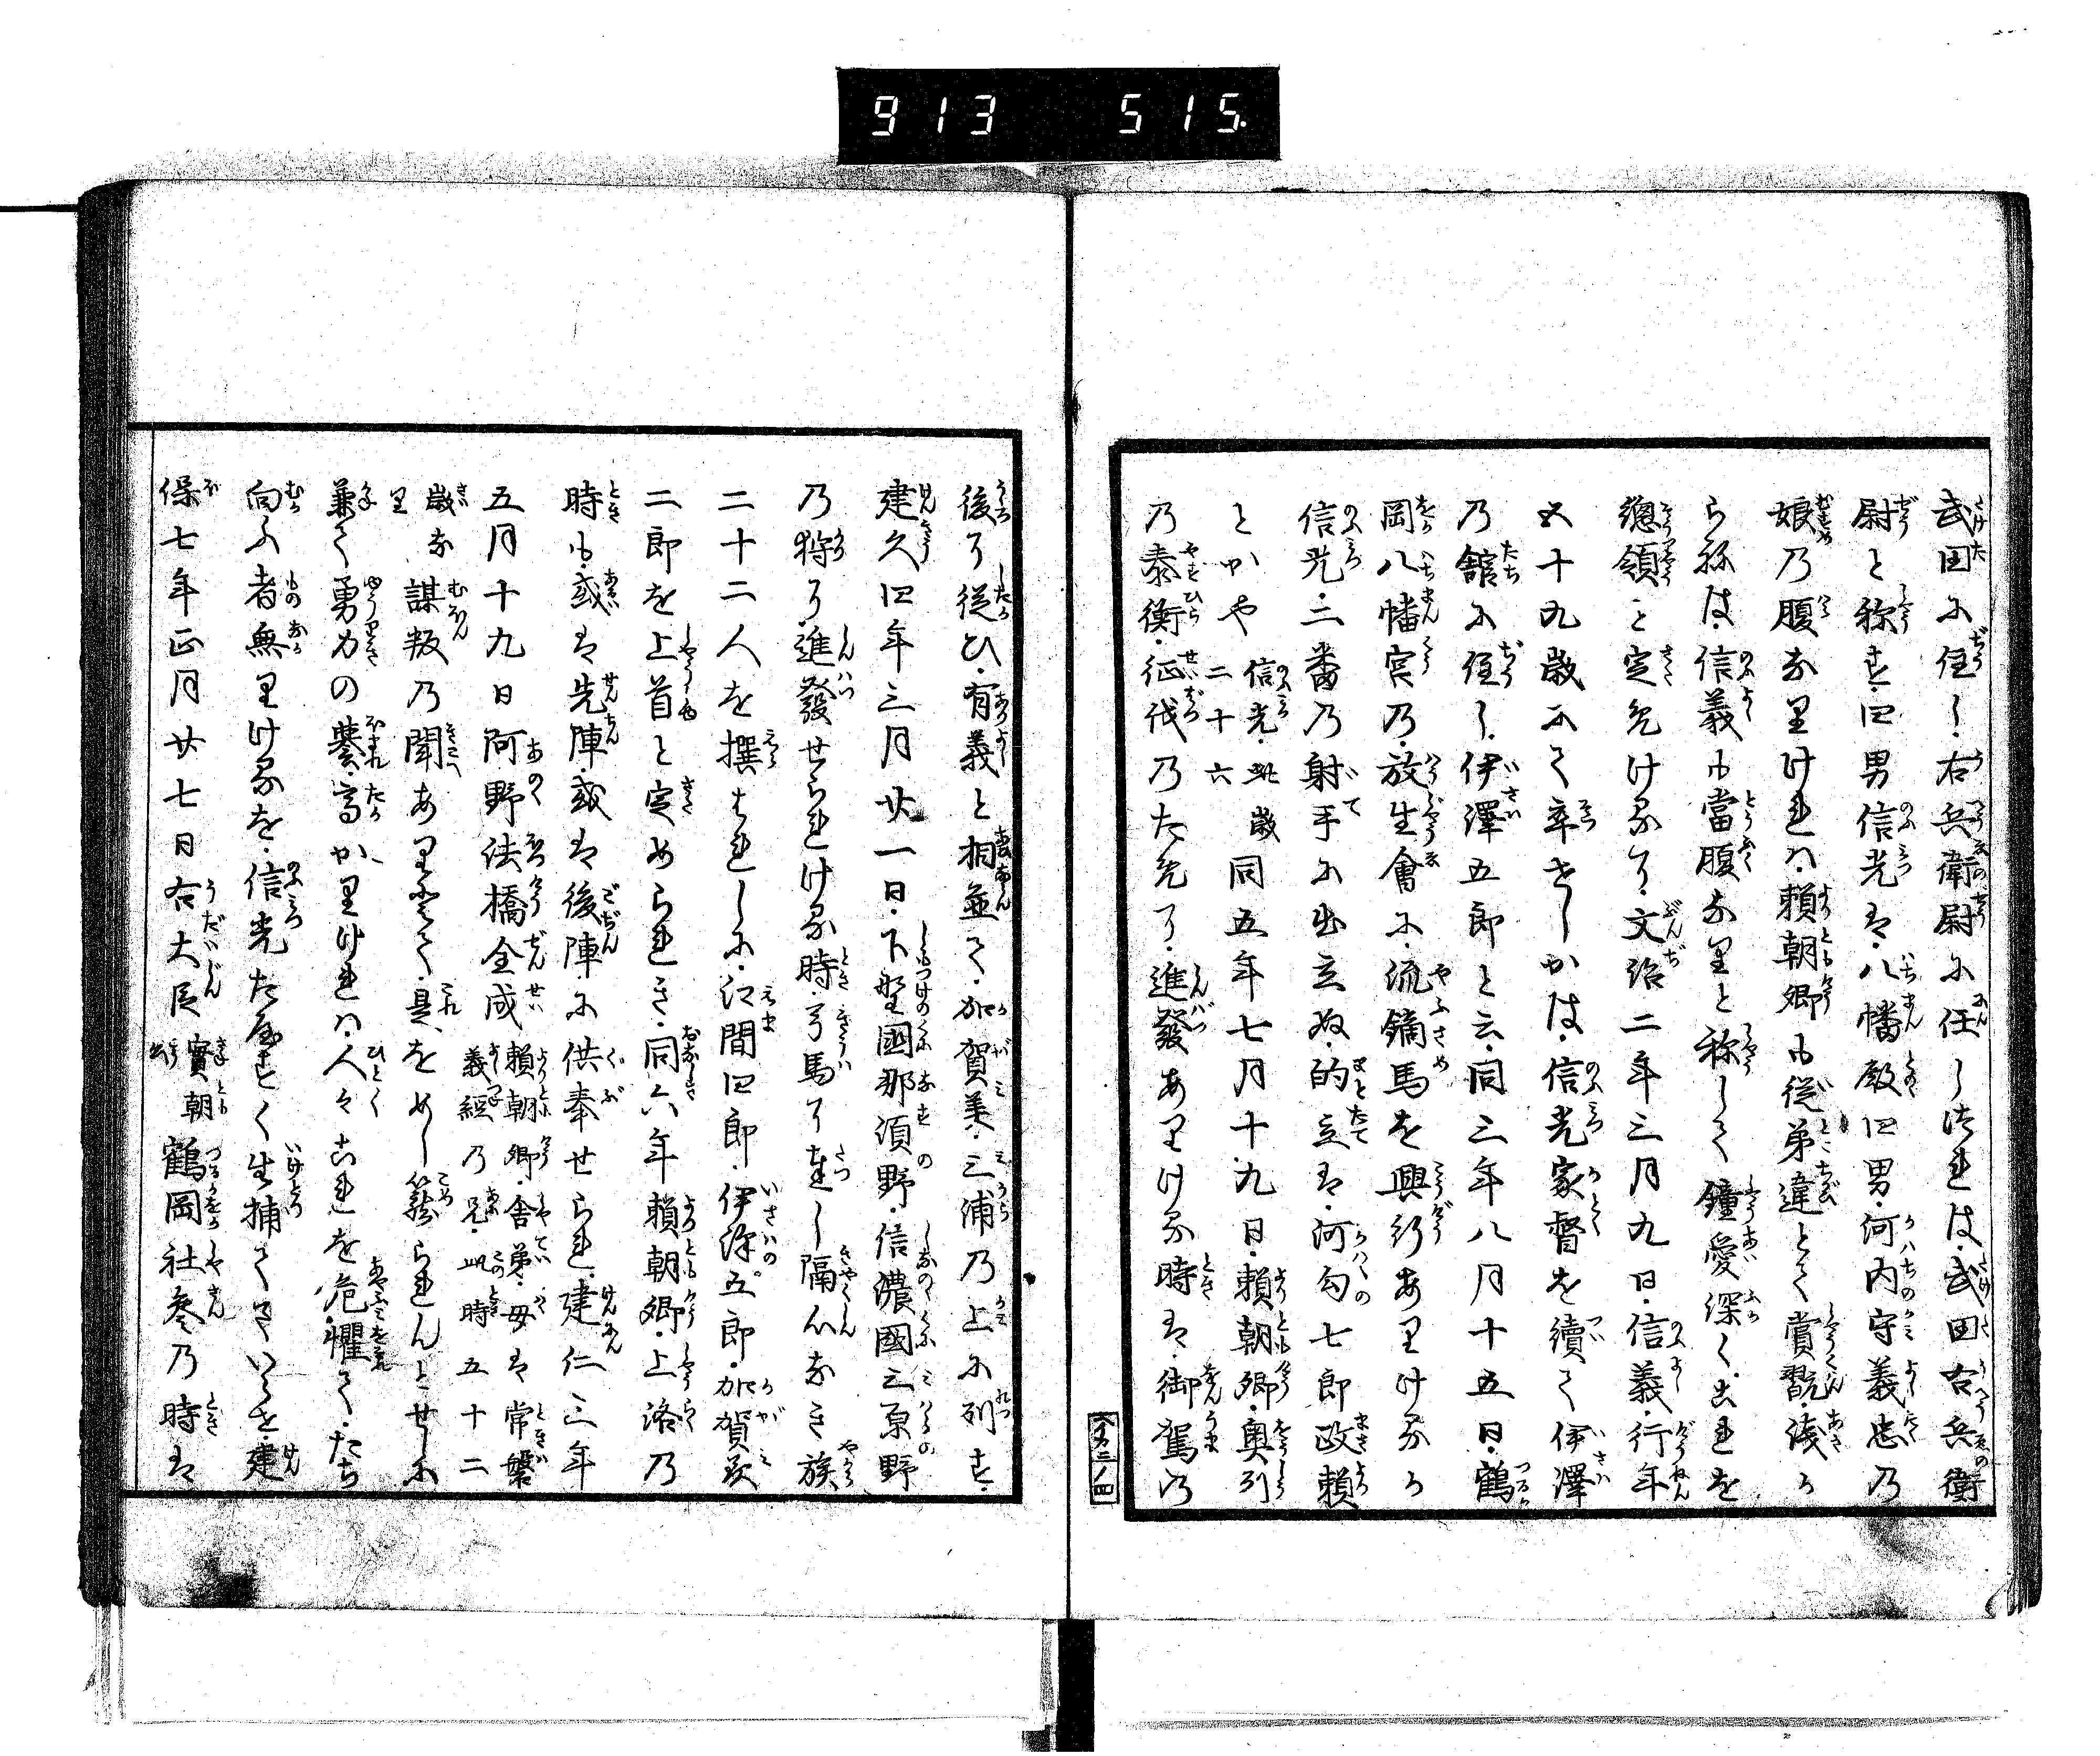 913 515.
武田に住し。右兵衛尉に任しければ。武田右兵衛
尉と称す。四男信光は。八幡殿四男。河内守義忠の
娘乃腹なりければ。頼朝卿も従弟違とて賞翫浅か
らねば。信義も當腹なりと称して鐘愛深く。これを
惣領と定めけるに。文治二年三月九日。信義。行年
五十九歳にて卒せしかば。信光家督を續て伊澤
乃舘に住し。伊澤五郎と云。同三年八月十五日。鶴
岡八幡宮乃。放生會に。流鏑馬を興行ありけるか
信光。二番乃射手に出立ぬ。的立は。河勾七郎政頼
とかや信光。此歳二十六同五年七月十九日。頼朝卿。奥刕
乃泰衡。征伐乃ために。進發ありける時は。御駕乃
後に従ひ。有義と相並て。加賀美。三浦乃上に列す。
建久四年三月廿一日。下野國那須野。信濃國三原野
乃狩に。進發せられける時。弓馬に達し隔心なき族
二十二人を撰はれしに。江間四郎。伊澤五郎。加賀美
二郎を上首と定められき。同六年頼朝卿。上洛乃
時も。或は先陣。或は後陣に供奉せられ。建仁三年
五月十九日阿野法橋全成頼朝卿。舎弟。母は常盤義經乃兄。此時五十二
歳なり謀叛乃聞ありとて。是をめし籠られんとせしに
兼て勇力の誉。高かりければ。人々これを危懼て。たち
向ふ者無りけるを。信光たやすく生捕てまいらせ。建
保七年正月廿七日右大臣實朝公鶴岡社参乃時は